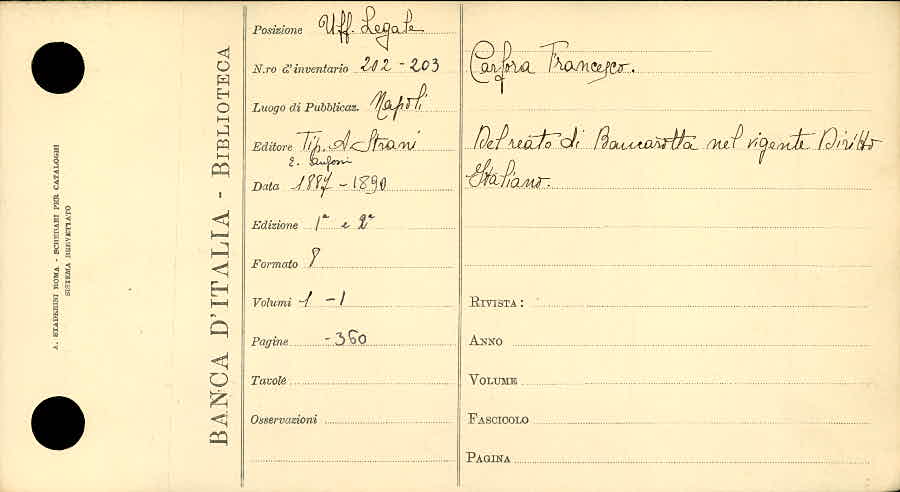 A. STADERINI ROMA - SCHEDARI PER CATALOGHI
SISTEMA BREVETTATO
BANCA D'ITALIA - BIBLIOTECA
Posizione Uff. Legale
N.ro d'inventario 202 - 203
Luogo di Pubblicaz. Napoli
Editore Tip. A Strani
E.
Data 1887 - 1890
Edizione 1ª e 2ª
Formato 8
Volumi 1 - 1
Pagine - 360
Tavole
Osservazioni
Carfora Francesco.
Del reato di Bancarotta nel vigente Diritto
Italiano.
RIVISTA:
ANNO
VOLUME
FASCICOLO
PAGINA